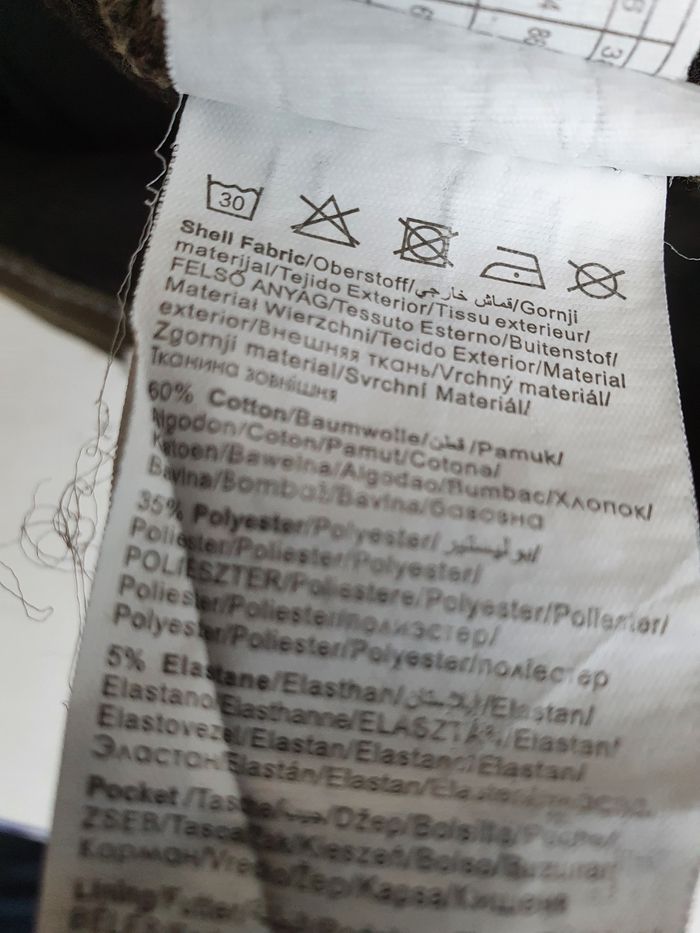 30
Shell Fabric/Oberstoff/قماش خارجي/Gornji
materijal/Tejido Exterior/Tissu exterieur/
FELSŐ ANYAG/Tessuto Esterno/Buitenstof/
Materiał Wierzchni/Tecido Exterior/Material
exterior/Внешняя ткань/Vrchný materiál/
Zgornji material/Svrchní Materiál/
Тканина зовнішня
60% Cotton/Baumwolle/قطن/Pamuk/
Algodon/Coton/Pamut/Cotone/
Katoen/Bawelna/Algodao/Bumbac/Хлопок/
Bavlna/Bombaž/Bavlna/бавовна
35% Polyester/Polyester/بوليستير/
Poliester/Poliester/Polyester/
POLIESZTER/Poliestere/Polyester/Poliester/
Poliester/Poliester/полиэстер/
Polyester/Poliester/Polyester/поліестер
5% Elastane/Elasthan/إيلاستان/Elastan/
Elastano/Elasthanne/ELASZTÁN/Elastan/
Elastovezel/Elastan/Elastano/Elastan/
Эластан/Elastán/Elastan/
Pocket/Tasche/جيب/Džep/Bolsillo/Poche/
ZSEB/Tasca/Kieszeń/Bolso/Buzunar
Карман/Vrecko/Žep/Kapsa/Кишеня
Lining/Futter/